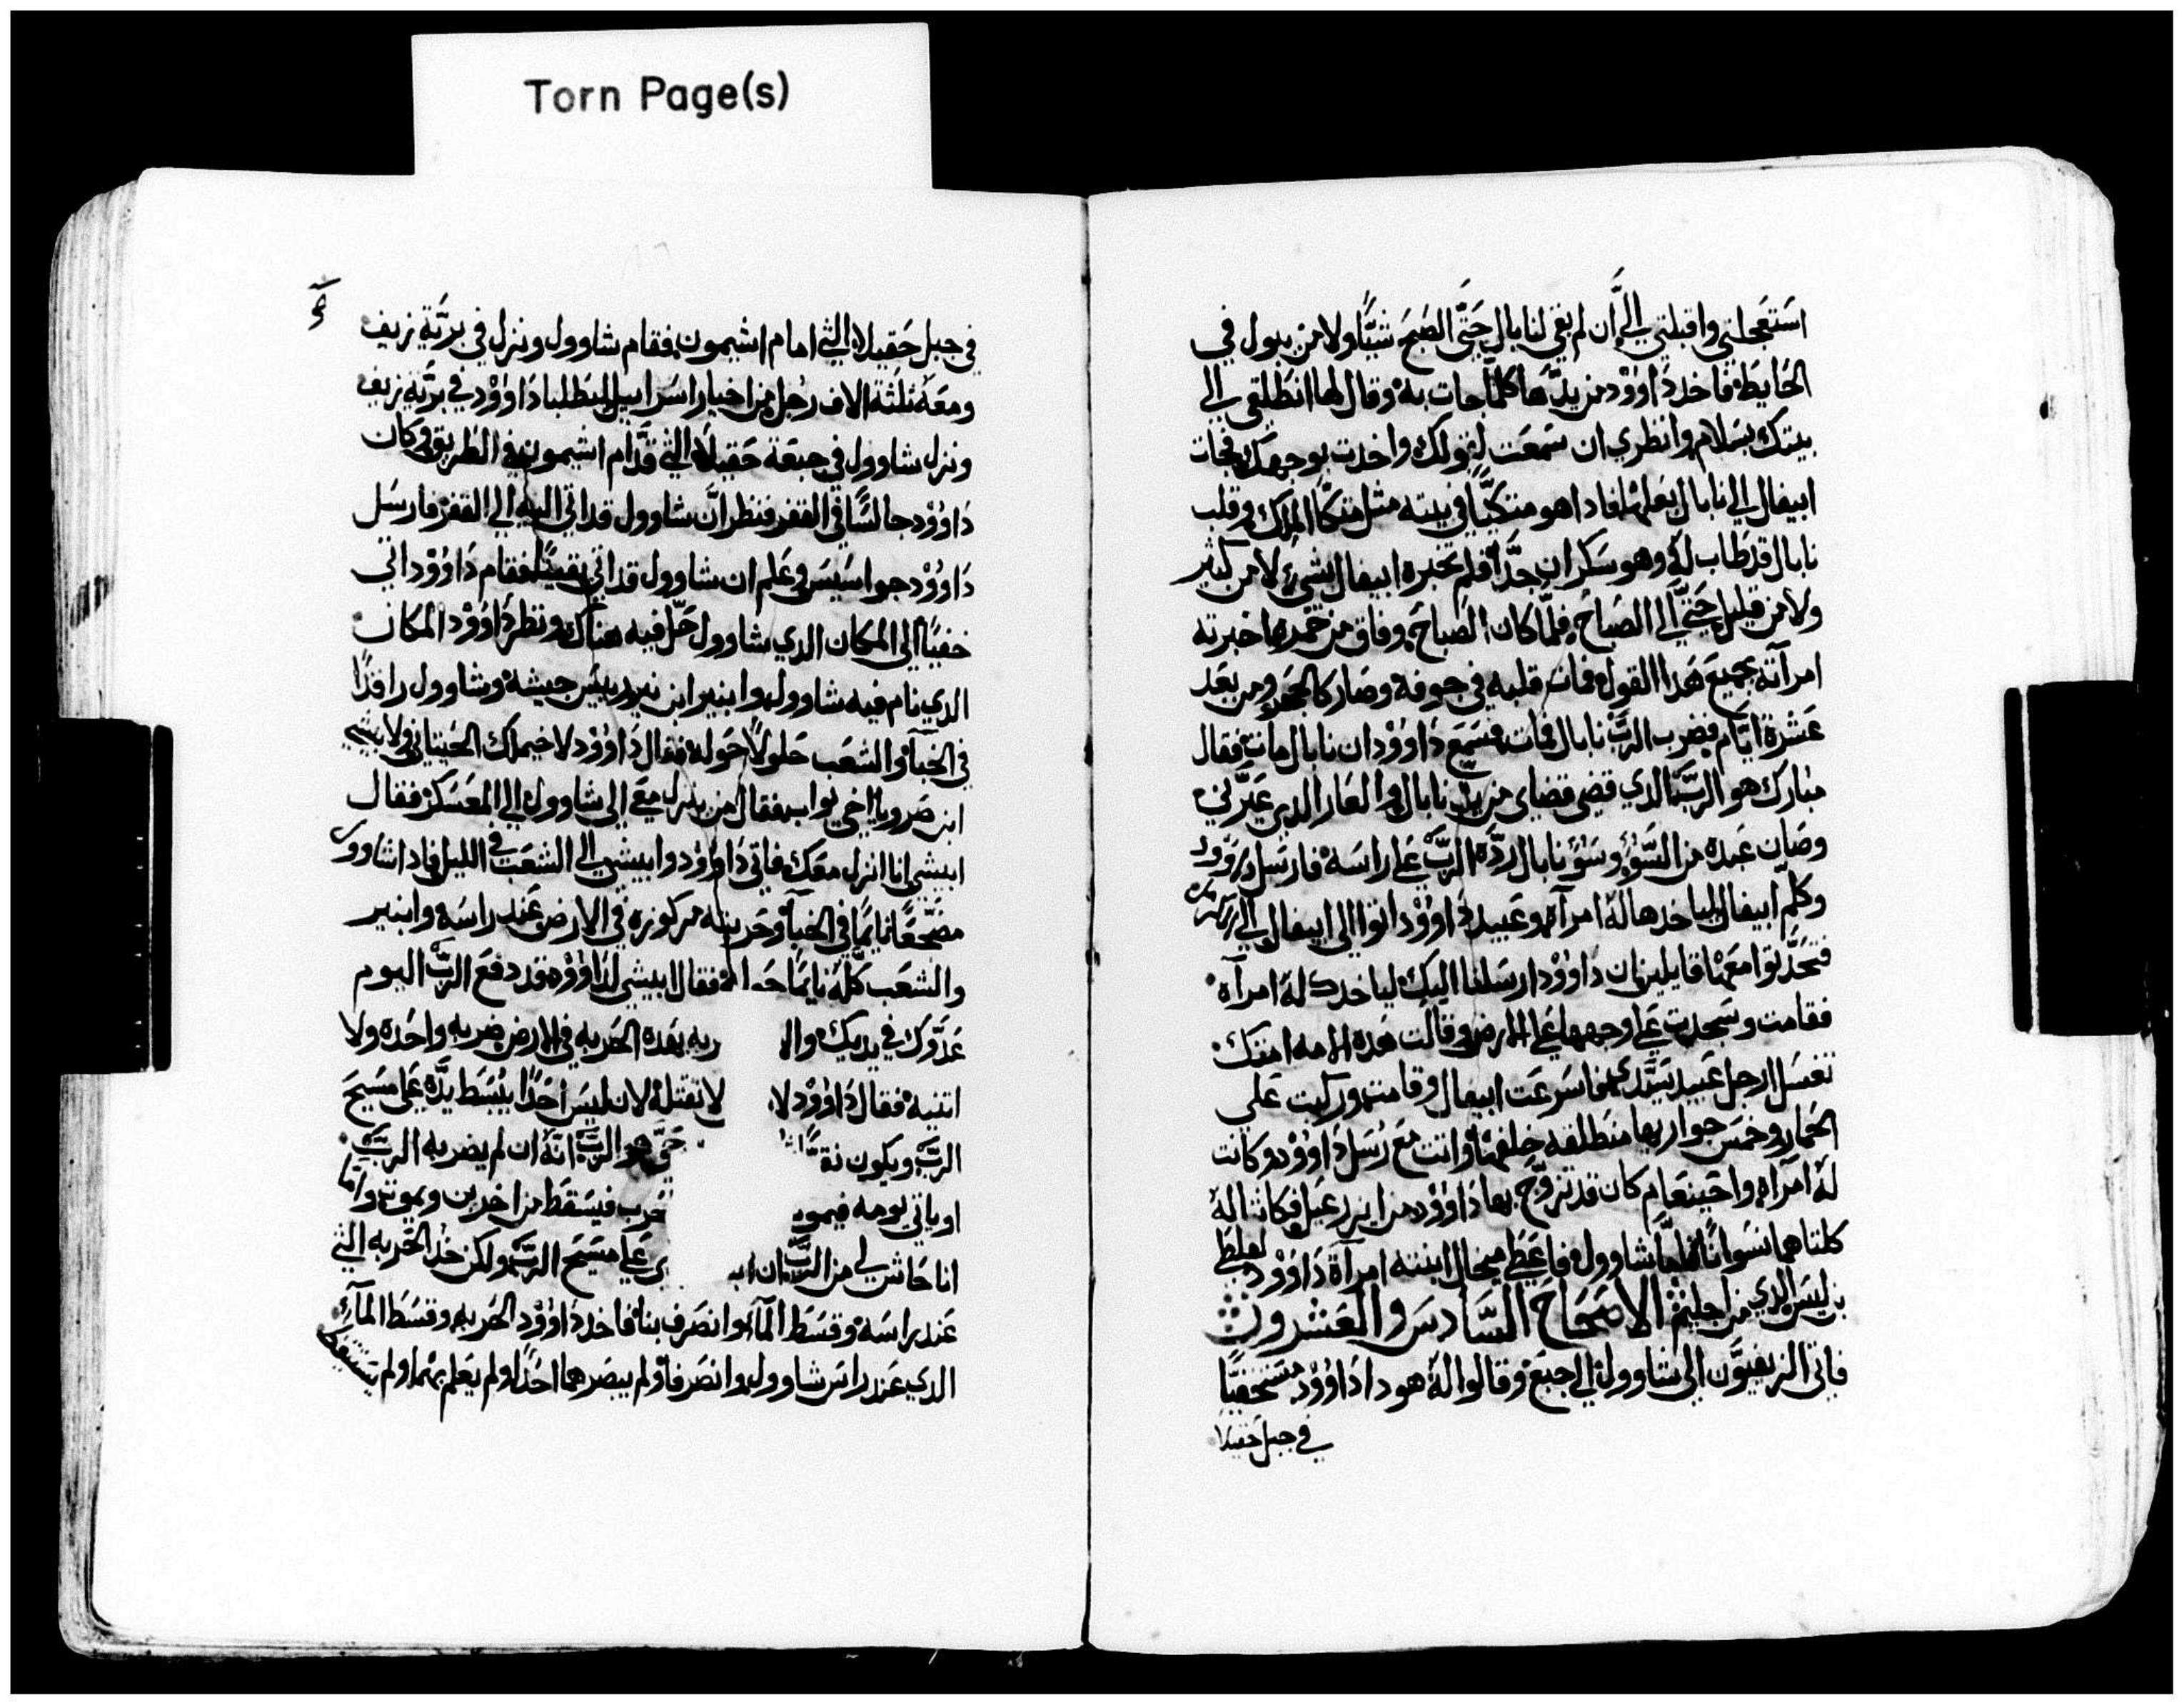 Torn Page(s)
استعجلتي واقبلتي الي ان لم بقي لنابال حتي الصبح شيًا ولا من يبول في
الحايط فاخد داوود من يدها كلما جات به وقال لها انطلقي الي
بيتك بسلام وانظري ان سمعت لقولك واخدت بوجهك فجات
ابيغال الي نابال بعلها فادا هو متكيًا في بيته مثل متكا الملك وقلب
نابال قد طاب له وهو سكران جدًا فلم تخبره ابيغال بشي لا من كثير
ولا من قليل حتي الي الصباح فلما كان الصباح وفاق من خمره اخبرته
امرآته بجميع هدا القول فمات قلبه في جوفه وصار كالحجر ومن بعد
عشرة ايام فضرب الرب نابال فمات فسمع داوود ان نابال مات فقال
مبارك هو الرب الدي قضي قضاي من يد نابال والعار الدي عيرني
وصان عبده من السؤ وسؤ نابال رده الرب علي راسه فارسل داوود
وكلم ابيغال لياخدها له امرآة وعبيد داوود اتوا الي ابيغال الي
فتحدثوا معها قايلين ان داوود ارسلنا اليك لياخدك له امرآة
فقامت وسجدت علي وجهها علي الارض وقالت هده الامه امتك
تغسل ارجل عبيد سيدي فاسرعت ابيغال وقامت وركبت علي
الحمار وخمس جواريها منطلقه خلفها واتت مع رسل داوود وكانت
له امرآة واخينعام كان قد تزوج بها داوود من ايزرعيل فكانتا له
كلتاهما نسوانًا اما شاوول فاعطي ميخال ابنته امرآة داوود لفلطي
بن ليس الدي من جليم الاصحاح السادس والعشرون
فاتي الزيفيون الي شاوول الي جبع وقالوا له هودا داوود مستخفيًا
في جبل حقيلا
في جبل حقيلا التي امام اشيمون فقام شاوول ونزل في برية زيف
ومعه ثلثة الاف رجل من اخيار اسراييل ليطلبا داوود في برية زيف
ونزل شاوول في جبعة حقيلا التي قدام اشيمون في الطريق وكان
داوود جالسًا في القفر فنظر ان شاوول قد اتي اليه الي القفر فارسل
داوود جواسيس وعلم ان شاوول قد اتي يقينًا فقام داوود اتي
خفيًا الي المكان الدي شاوول حل فيه هناك ونظر داوود المكان
الدي نام فيه شاوول وابنير ابن نير رييس جيشه وشاوول راقدًا
في الخبآ والشعب حلولًا حوله فقال داوود لاخيملك الحيتاني ولابيشي
ابن صرويا اخي يواب فقال من ينزل معي الي شاوول الي المعسكر فقال
ابيشي انا انزل معك فاتي داوود وابيشي الي الشعب في الليل فادا شاوول
مضجعًا نايمًا في الخبآ وحربته مركوزه في الارض عند راسه وابنير
والشعب كله نايمًا حو له فقال ابيشي لداوود قد دفع الرب اليوم
عدوك في يديك وال ربه بهده الحربه في الارض ضربه واحده ولا
اتنيه فقال داوود لا لا تقتله لان ليس احدًا يبسط يده علي مسيح
الرب ويكون نق حي هو الرب انه ان لم يضربه الرب
او ياتي يومه فيمو حرب فيسقط من اخرين ويموت واما
انا حاش لي من الرب ان اب ي علي مسيح الرب ولكن خد الحربه التي
عند راسه وقسط المآء وانصرف بنا فاخد داوود الحربه وقسط المآء
الدي عند راس شاوول وانصرفا ولم يبصرهما احدًا ولم يعلم بهما ولم يستيقظ